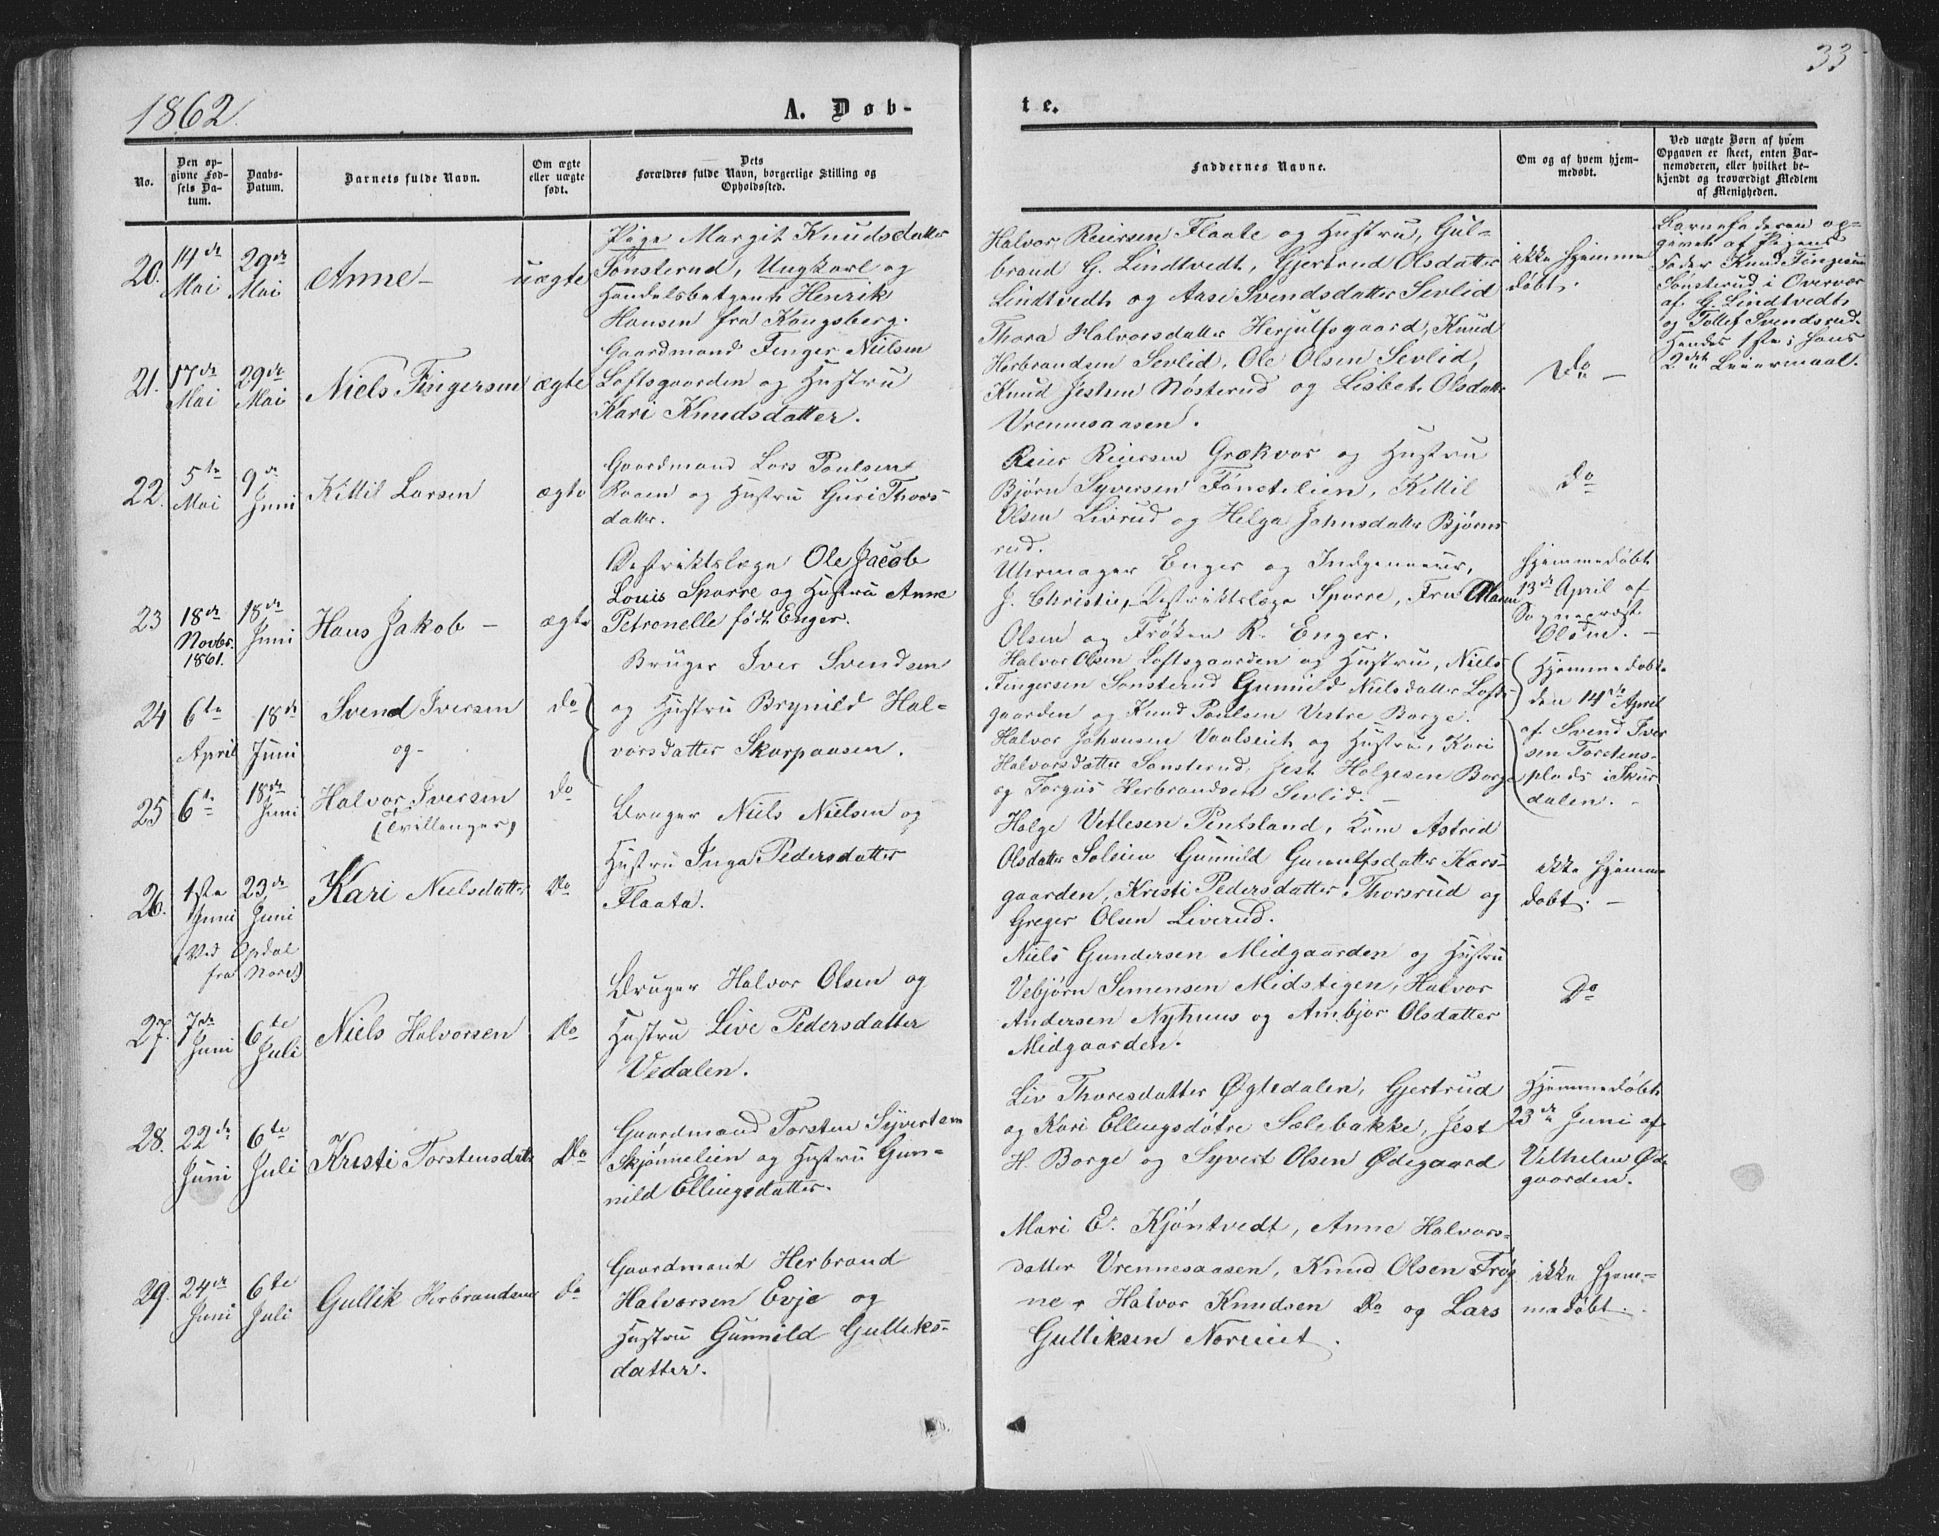 33
1862.
A. Døb-
te.
No.
Den op-
givne Fød-
sels Da-
tum.
Daabs-
Datum.
Barnets fulde Navn.
Om ægte
eller uægte
født.
Dets
Forældres fulde Navn, borgerlige Stilling og
Opholdssted.
Faddernes Navne.
Om og af hvem hjem-
medøbt.
Ved uægte Børn af hvem
Opgaven er skeet, enten Bar-
nemoderen, eller hvilket be-
kjendt og troværdigt Medlem
af Menigheden.
20.
14de
Mai
29de
Mai
Anne –
uægte
Pige Margit Knudsdatter
Sønsterud, Ungkarl og
Handelsbetjent Henrik
Hansen fra Kongsberg.
Halvor Reiersen Flaate og Hustru, Gul-
brand G. Lindtvedt, Gjertrud Olsdatter
Lindtvedt og Aase Svendsdatter Sevlid
ikke hjemme
døbt.
Barnefaderen op-
given af Pigens
Fader Knud Fingersen
Sønsterud i Overvær
af G. Lindtvedt
og Tollef Svendsrud.
Hendes 1ste, hans
2det Leiermaal.
21.
17de
Mai
29de
Mai
Niels Fingersen
ægte
Gaardmand Finger Nielsen
Loftsgaarden og Hustru
Kari Knudsdatter.
Thora Halvorsdatter Herjulfsgaard, Knud
Herbrandsen Sevlid, Ole Olsen Sevlid,
Knud Jestsen Nøsterud og Lisbet Olsdatter
Vrennesaasen.
Do –
22.
5te
Mai
9de
Juni
Kittil Larsen
ægte
Gaardmand Lars Poulsen
Raaen og Hustru Guri Thors-
datter.
Reier Reiersen Grækvar og Hustru
Bjørn Syversen Fønetelien, Kittil
Olsen Livrud og Helga Johnsdatter Bjøens
rud.
Do
23
18de
Novbr.
1861.
18de
Juni
Hans Jakob –
ægte
Destriktslæge Ole Jacob
Louis Sparre og Hustru Anne
Petronelle født Enger.
Uhrmager Enger og Indgenieur,
J. Christie, Destriktslæge Sparre, Fru Maren
Olsen og Frøken R. Enger.
Hjemmedøbt
13de April af
Sognepræst
Olsen. –
24
6te
April
18de
Juni
Svend Iversen
og
Do
Bruger Iver Svendsen
og Hustru Brynild Hal-
vorsdatter Skarpaasen.
Halvor Olsen Loftsgaarden og Hustru, Niels
Fingersen Sønsterud Gunnild Nielsdatter Lofts-
gaarden og Knud Poulsen Vestre Borge.
Hjemmedøbt
den 14de April
af Svend Iver
sen Torstens-
plads i Skur
dalen. –
25
6te
18de
Juni
Halvor Iversen
(Tvillinger)
Do
Halvor Johansen Vaalseit og Hustru, Kari
Halvorsdatter Sønsterud, Jest Helgesen Borge
og Torgus Herbrandsen Sevlid. –
26.
1ste
Juni
23de
Juni
(Ved Opdal
fra Nore)
Kari Nielsdatter
Do
Bruger Niels Nielsen og
Hustru Inga Pedersdatter
Flaata.
Helge Vetlesen Pentsland, Kone Astrid
Olsdatter Soleim Gunnild Gunulfsdatter Kors-
gaarden, Kristi Pedersdatter Thorsrud og
Greger Olsen Liverud.
ikke hjemme
døbt. –
27.
7de
Juni
6te
Juli
Niels Halvorsen
Do
Bruger Halvor Olsen og
Hustru Live Pedersdatter
Vedalen.
Niels Gundersen Midgaarden og Hustru
Vebjørn Semensen Midstigen, Halvor
Andersen Nyhuus og Ambjør Olsdatter
Midgaarden.
Do
28.
22de
Juni
6te
Juli
Kristi Torstensdatter
Do
Gaardmand Torsten Syvertsen
Skjønnelien og Hustru Gun-
nild Ellingsdatter.
Liv Thoresdatter Øgledalen, Gjertrud
og Kari Ellingsdøtre Sælebakke, Jest
H. Borge og Syvert Olsen Ødegaard
Hjemmedøbt
23de Juni af
Velhelm Øde
gaarden.
29.
24de
Juni
6te
Juli
Gullik Herbrandsen
Do
Gaardmand Herbrand
Halvorsen Evje og
Hustru Gunnild Gulleks-
datter.
Mari E. Kjøntvedt, Anne Halvors-
datter Vrennesaasen, Knud Olsen Frøg
ne, Halvor Knudsen Do og Lars
Gulliksen Noreiet.
ikke hjem-
medøbt.